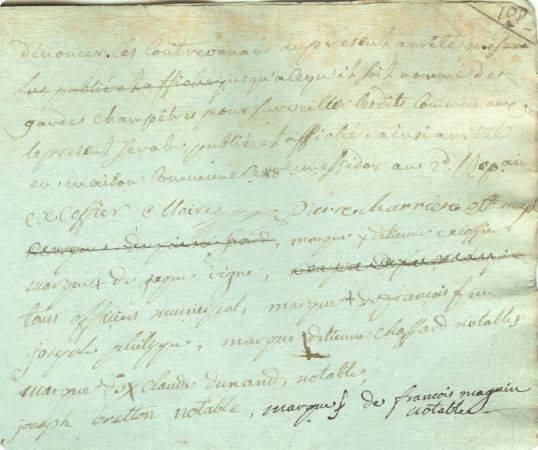 108
dénoncer les Contrevenans au present arrêté qui sera
lu publié et affiché jusqu'a ce qu'il soit nommé des
gardes champêtres pour surveiller les dits Communaux
le present sera lu publié et affiché. ainsi arrêté
en maison Commune ce 18e messidor an 2d. Rep.
excoffier Maire pierre charriere off. mup
marque x détienne excoffier,
marque x de jaque vigne,
tous officiers municipal, marque + de francois
joseph philippe, marque + détienne chaffard notables
marque de x claude dunand, notable,
joseph bretton notable, marque de francois magnin
notable